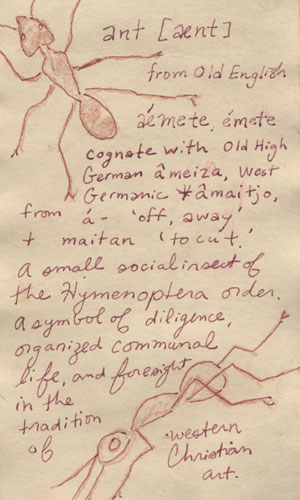 ant [ænt]
from Old English
aémete, émete
cognate with Old High
German âmeiza, West
Germanic *âmaitjo,
from á- 'off, away'
+ maitan 'to cut.'
a small social insect of
the Hymenoptera order.
a symbol of diligence,
organized communal
life, and foresight
in the
tradition
of
western
Christian
art.